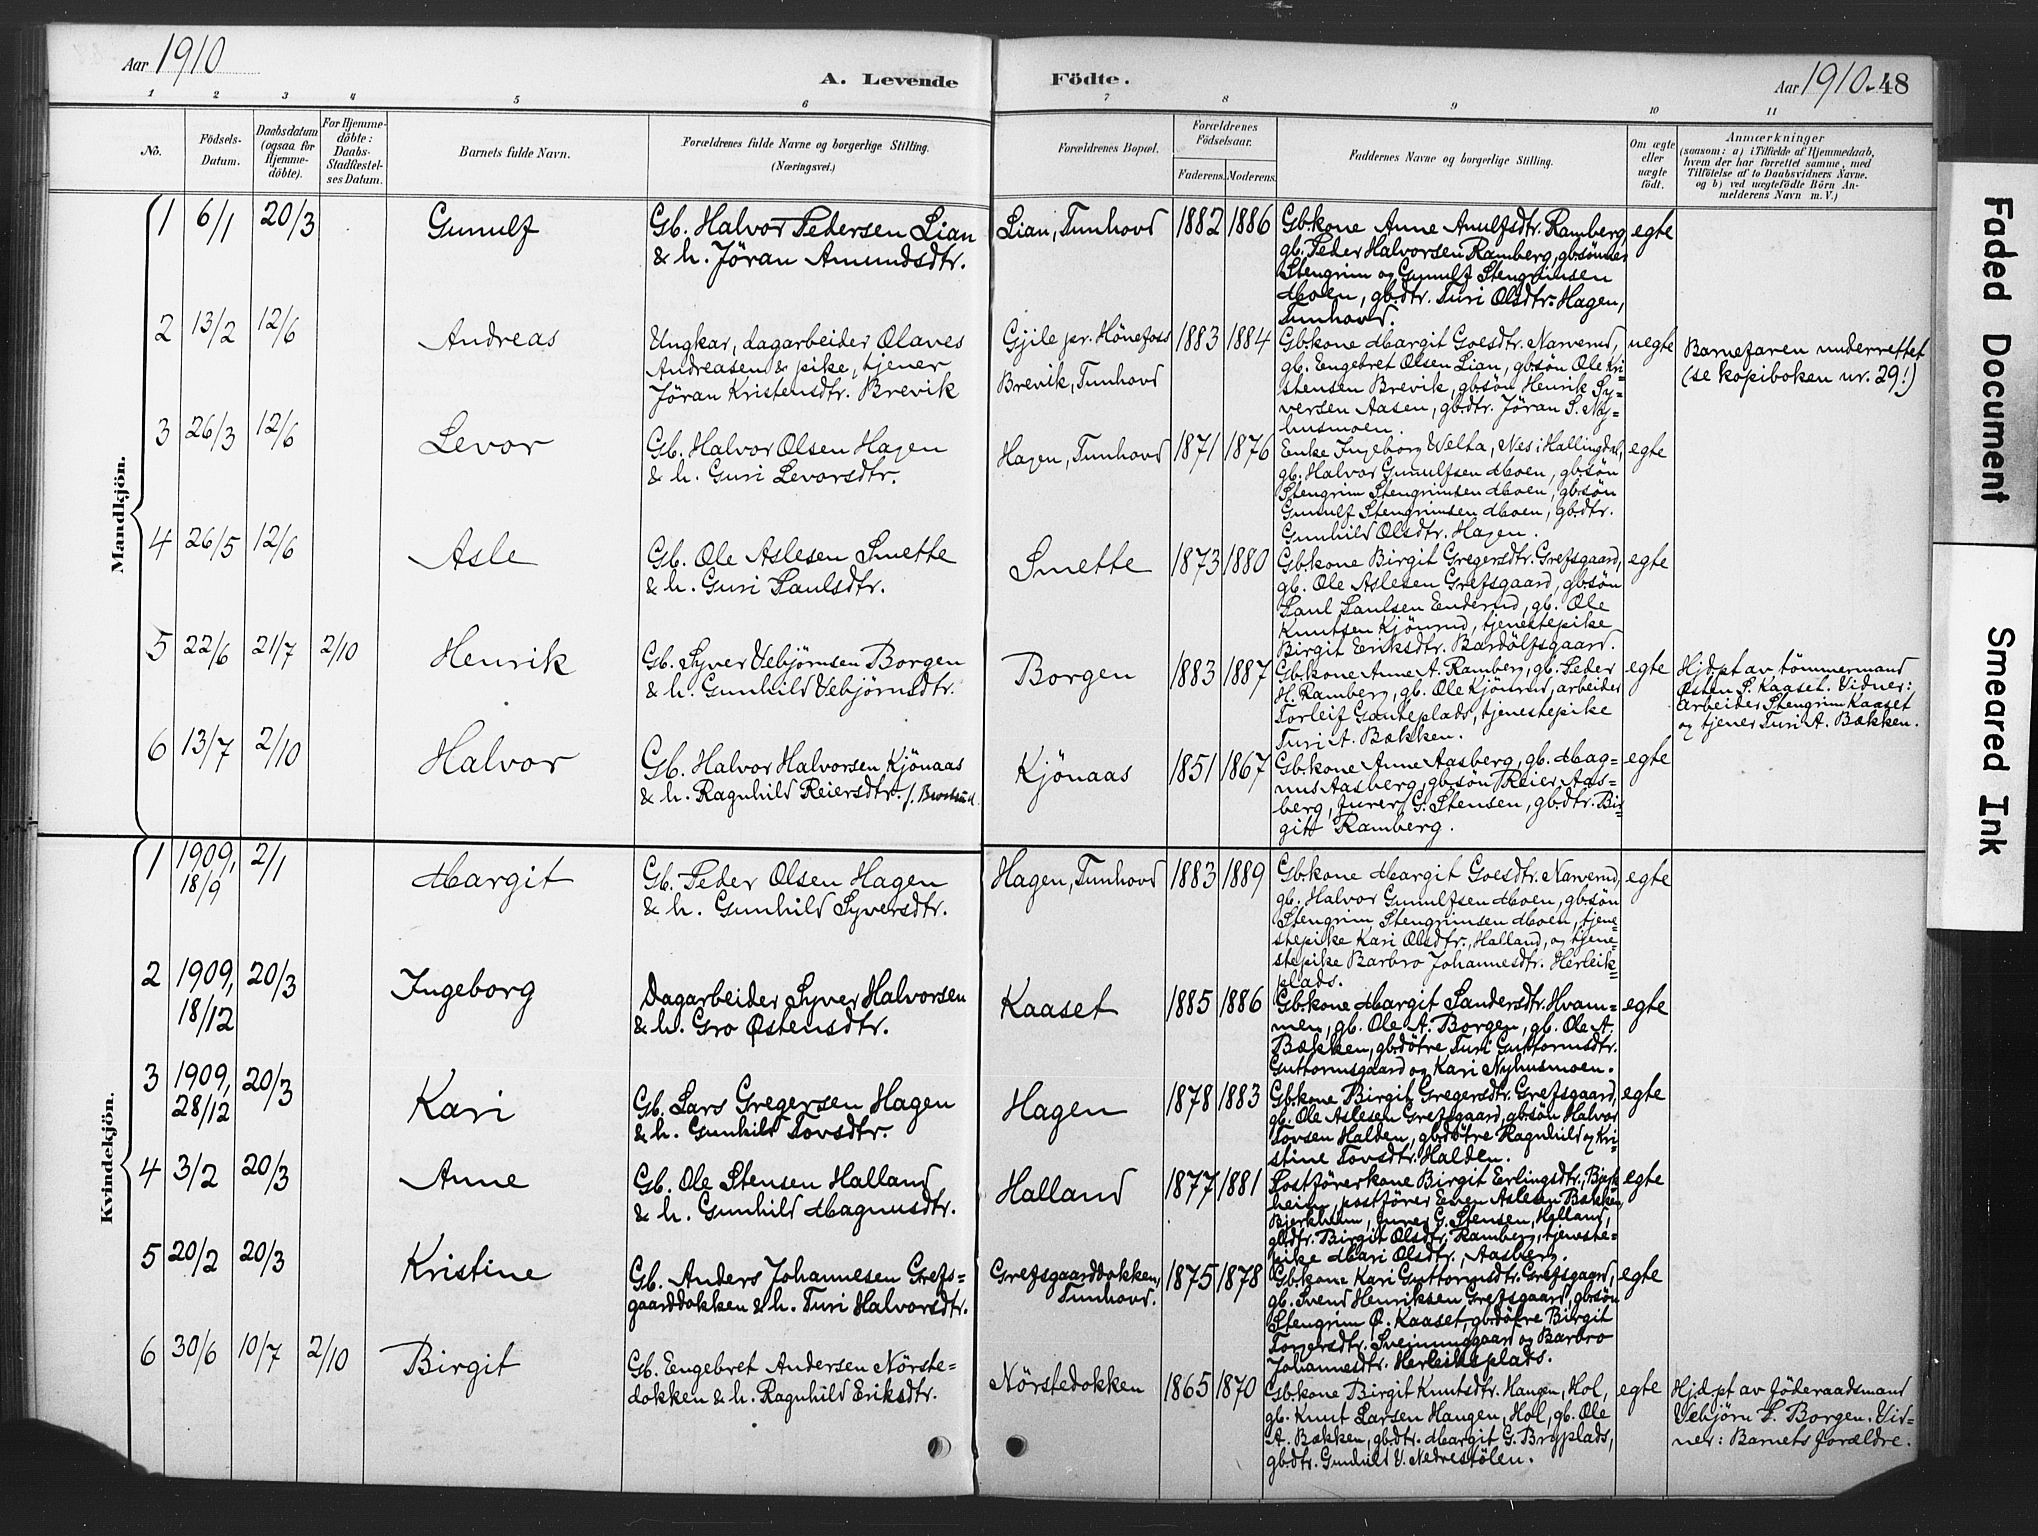 Aar 1910
A. Levende
Födte.
Aar 1910. 48
1 2 3 4 5 6 7 8 9 10 11
No.
Födsels-
Datum.
Daabsdatum
(ogsaa for
Hjemme-
döbte).
For Hjemme-
döbte:
Daabs-
Stadfæstel-
ses Datum.
Barnets fulde Navn.
Forældrenes fulde Navne og borgerlige Stilling.
(Næringsvei.)
Forældrenes Bopæl.
Forældrenes
Födselsaar.
Faderens. Moderens.
Faddernes Navne og borgerlige Stilling.
Om ægte
eller
uægte
födt.
Anmærkninger
(saasom: a) i Tilfælde af Hjemmedaab,
hvem der har forrettet samme, med
Tilföielse af to Daabsvidners Navne.
og b) ved uægtefödte Börn An-
melderens Navn m. V.)
Mandkjön.
1 6/1 20/3 Gunulf
Gb. Halvor Pedersen Lian
& h. Jöran Amundsdtr.
Lian, Tunhovd 1882 1886
Gb.kone Anne Anulfsdtr. Ramberg,
gb. Peder Halvorsen Ramberg, gbsönner
Stengrim og Gunulf Stengrimsen
Moen, gb.dtr. Turi Olsdtr. Hagen,
Tunhovd.
egte
2 13/2 12/6 Andreas
Ungkar, dagarbeider Olaves
Andreasen & pike, tjener
Jöran Kristensdtr. Brevik
Gjile pr. Hönefoss
Brevik, Tunhovd
1883 1884
Gb.kone Margit Goesdtr. Narverud,
gb. Engebret Olsen Lian, gbsön Ole Kri-
stensen Brevik, gbsön Henrik Sy-
versen Aasen, gbdtr. Jöran S. Ny-
husmoen.
uegte
Barnefaren underrettet
(se kopiboken nr. 29!)
3 26/3 12/6 Levor
Gb. Halvor Olsen Hagen
& h. Guri Levorsdtr.
Hagen, Tunhovd 1871 1876
Enke Ingeborg Velta, Nes i Hallingdal,
gb. Halvor Gunulfsen Moen, gbsön
Stengrim Stengrimsen Moen, gbsön
Gunulf Stengrimsen Moen, gbdtr.
Gunhild Olsdtr. Hagen.
egte
4 26/5 12/6 Asle
Gb. Ole Aslesen Smette
& h. Guri Paulsdtr.
Smette 1873 1880
Gb.kone Birgit Gregersdtr. Grefsgaard,
gb. Ole Aslesen Grefsgaard, gbsön
Paul Paulsen Enderud, gb. Ole
Knutsen Kjönrud, tjenestepike
Birgit Eriksdtr. Bardölfsgaard.
egte
5 22/6 21/7 2/10 Henrik
Gb. Syver Vebjörnsen Borgen
& h. Gunhild Vebjörnsdtr.
Borgen 1883 1887
Gb.kone Anne A. Ramberg, gb. Peder
H. Ramberg, gb. Ole Kjönrud, arbeider
Torleif Gauteplads, tjenestepike
Turi A. Bækken.
egte
Hjd.pt av tömmermand
Østen S. Kaaset. Vidner:
arbeider Stengrim Kaaset
og tjener Turi A. Bækken.
6 13/7 2/10 Halvor
Gb. Halvor Halvorsen Kjönaas
& h. Ragnhild Reiersdtr.
Kjönaas 1851 1867
Gb.kone Anne Aasberg, gb. Mag-
nus Aasberg, gbsön Reier Aas-
berg, lærer G. Stensen, gbdtr. Bir-
gitt Ramberg.
egte
Kvindekjön.
1 1909, 18/9 2/1 Margit
Gb. Peder Olsen Hagen
& h. Gunhild Syversdtr.
Hagen, Tunhovd 1883 1889
Gb.kone Margit Goesdtr. Narverud,
gb. Halvor Gunulfsen Moen, gbsön
Stengrim Stengrimsen Moen, tjene-
stepike Kari Olsdtr., Halland, og tjene-
stepike Barbro Johannesdtr. Herleik-
plads.
egte
2 1909, 18/12 20/3 Ingeborg
Dagarbeider Syver Halvorsen
& h. Gro Østensdtr.
Kaaset 1885 1886
Gb.kone Margit Sandersdtr. Hvam-
men, gb. Ole A. Borgen, gb. Ole A.
Bækken, gbdötre Turi Guttormsdtr.
Guttormsgaard og Kari Nyhusmoen.
egte
3 1909, 28/12 20/3 Kari
Gb. Lars Gregersen Hagen
& h. Gunhild Tovsdtr.
Hagen 1878 1883
Gb.kone Birgit Gregersdtr. Grefsgaard,
gb. Ole Aslesen Grefsgaard, gbsön Halvor
Tovsen Halden, gbdötre Ragnhild og Kri-
stine Tovsdtr. Halden.
egte
4 3/2 20/3 Anne
Gb. Ole Stensen Halland
& h. Gunhild Magnusdtr.
Halland 1877 1881
Postförerkone Birgit Erlingsdtr., Bjerk-
heim, postförer Even Aslesen Bækken,
Bjerkheim, lærer G. Stensen, Halland,
gbdtr. Birgit Olsdtr. Ramberg, tjeneste-
pike Mari Olsdtr., Aasberg.
egte
5 20/2 20/3 Kristine
Gb. Anders Johannesen Grefs-
gaarddokken & h. Turi Halvorsdtr.
Grefsgaarddokken,
Tunhovd.
1875 1878
Gb.kone Kari Guttormsdtr. Grefsgaard,
gb. Svend Henriksen Grefsgaard, gbsön
Stengrim Ø. Kaaset, gbdötre Birgit
Torgersdtr. Sveinunggaard og Barbro
Johannesdtr. Herleiksplads.
egte
6 30/6 10/7 2/10 Birgit
Gb. Engebret Andersen Nörste-
dokken & h. Ragnhild Eriksdtr.
Nörstedokken 1865 1870
Gb.kone Birgit Knutsdtr. Haugen, Hol,
gb. Knut Larsen Haugen, Hol, gb. Ole
A. Bækken, gbdtr. Margit G. Bryplads,
gbdtr. Gunhild V. Nedrestölen.
egte
Hjd.pt av föderaadsmand
Vebjörn S. Borgen. Vid-
ner: Barnets forældre.
Faded Document
Smeared Ink